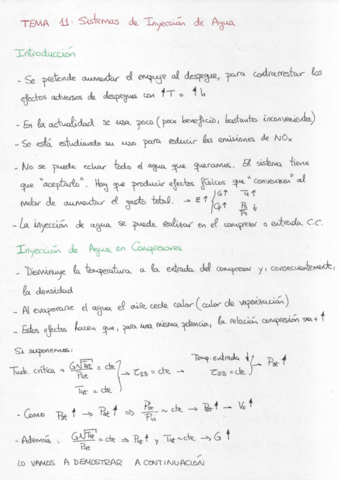 TEMA 11: Sistemas de Inyección de Agua
Introducción
- Se pretende aumentar el empuje al despegue, para contrarrestar los
efectos adversos de despegues con ↑T o ↑h
- En la actualidad se usa poco (poco beneficio, bastantes inconvenientes)
- Se está estudiando su uso para reducir las emisiones de NOx
- No se puede echar todo el agua que queramos. El sistema tiene
que "aceptarlo". Hay que producir efectos físicos que "convenzan" al
motor de aumentar el gasto total. → E↑
- La inyección de agua se puede realizar en el compresor o entrada C.C.
Inyección de Agua en Compresores
- Disminuye la temperatura a la entrada del compresor y, consecuentemente,
la densidad
- Al evaporarse el agua el aire cede calor (calor de vaporización)
- Estos efectos hacen que, para una misma potencia, la relación compresión sea ↑
Si suponemos:
Turb. crítica
= cte
Temp. entrada ↓
= cte
- Como
~ cte
- Además:
= cte
~ cte → G↑
LO VAMOS A DEMOSTRAR A CONTINUACIÓN